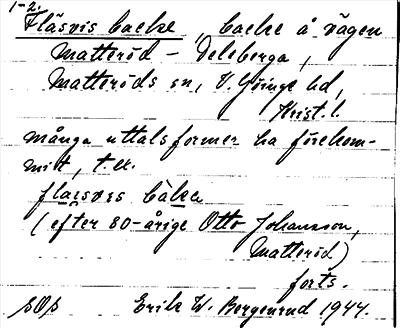 1-2.
Fläsvis backe, backe å vägen
Matteröd - Deleberga,
Matteröds sn, V. Göinge hd,
Krist. l.
många uttalsformer ha förekom-
mit, t. ex.
flaesves bakka
(efter 80-årige Otto Johansson,
Matteröd)
forts.
Erik W. Bergenrud 1944.